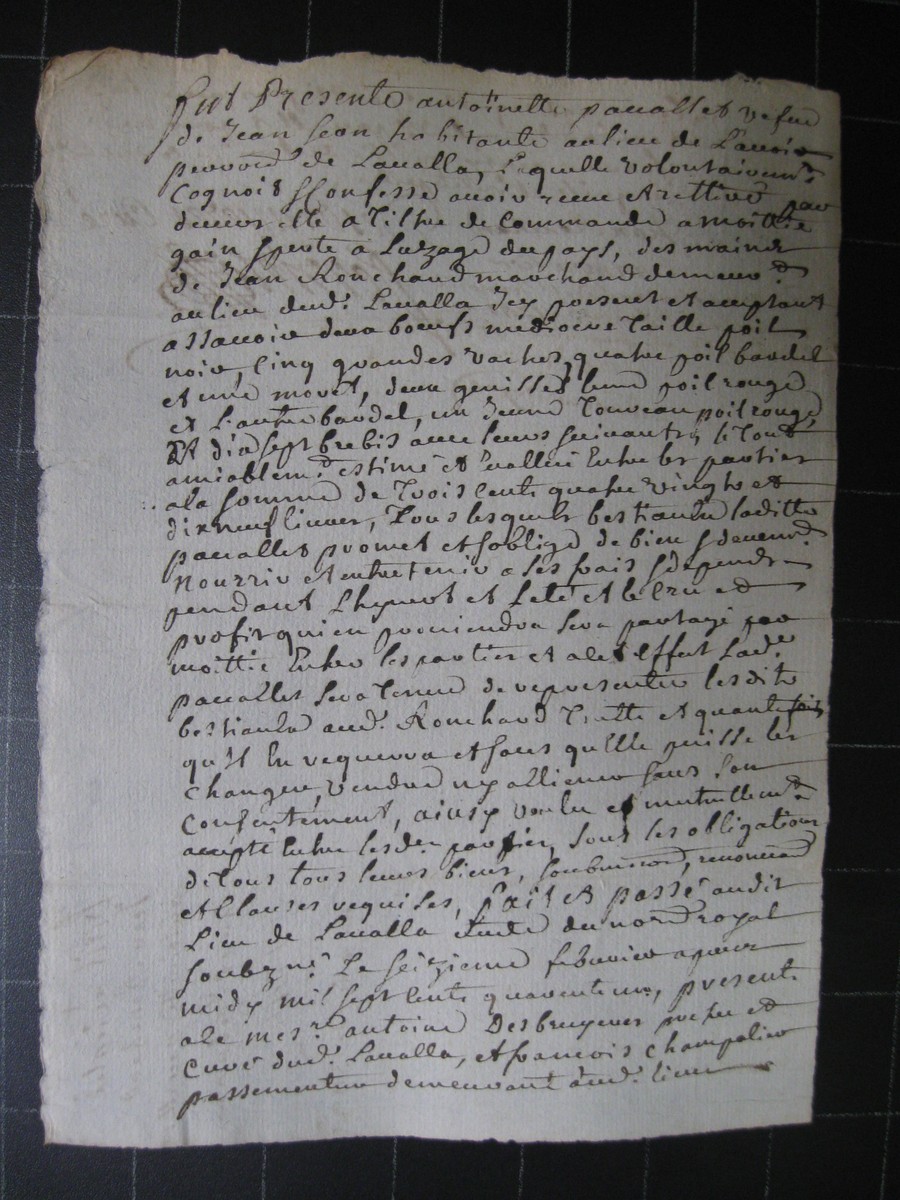 fut Presente antoïnette paccallet vefve
de Jean Jean habitante au lieu de Lavoix
parroisse de Lavalla, Lequelle volontairemt
Cognois & Confesse avoir reçue & rettiré par
devers elle a Tiltre de Commande a moittie
gain & perte a Luzage du pays, des mains
de Jean Ronchaud marchand demeurt
au lieu dudt Lavalla Icy present et acceptant
assavoir deux bœufs mediocre Taille poil
noir, Cinq grandes vaches, quatre poil bardel
et une moret, deux genisses Lune poil rouge
et Lautre bardel, un Jeune Toureau poil rouge,
Et dix sept brebis avec leurs suivants, le Tout
amiablemt estimé et evallué Entre les parties
a la somme de Trois Cents quatre vingts et
dix neuf livres, Tous lesquels bestiaux laditte
paccallet promet et soblige de bien & deuemt
Nourrir et entretenir a ses frais & depends
pendant Lhyvert et Leté et le Cru et
profit qui en proviendra sera partagé par
moittié Entre les parties et a cet Effet Lade
paccallet sera Tenue de representer lesdits
bestiaux audt Ronchaud Toutte et quante fois
qu'il En requerra et sans qu'elle puisse les
Changer, vendre ny alliener sans son
Consentement, ainsy voulu et mutuellemt
accepté Entre lesdes parties, sous les obligations
de tous tous leurs biens, soubmissions, renonciaons
et Clauses requises, fait et passé audit
Lieu de Lavalla Etude du nore royal
soubzné Le seizieme febvrier apres
midy mil sept Cents quarente un, presents
a le mesre antoine Desbruyeres prestre et
Curé dudt Lavalla, et francois Champalier
passementier demeurant audt lieu